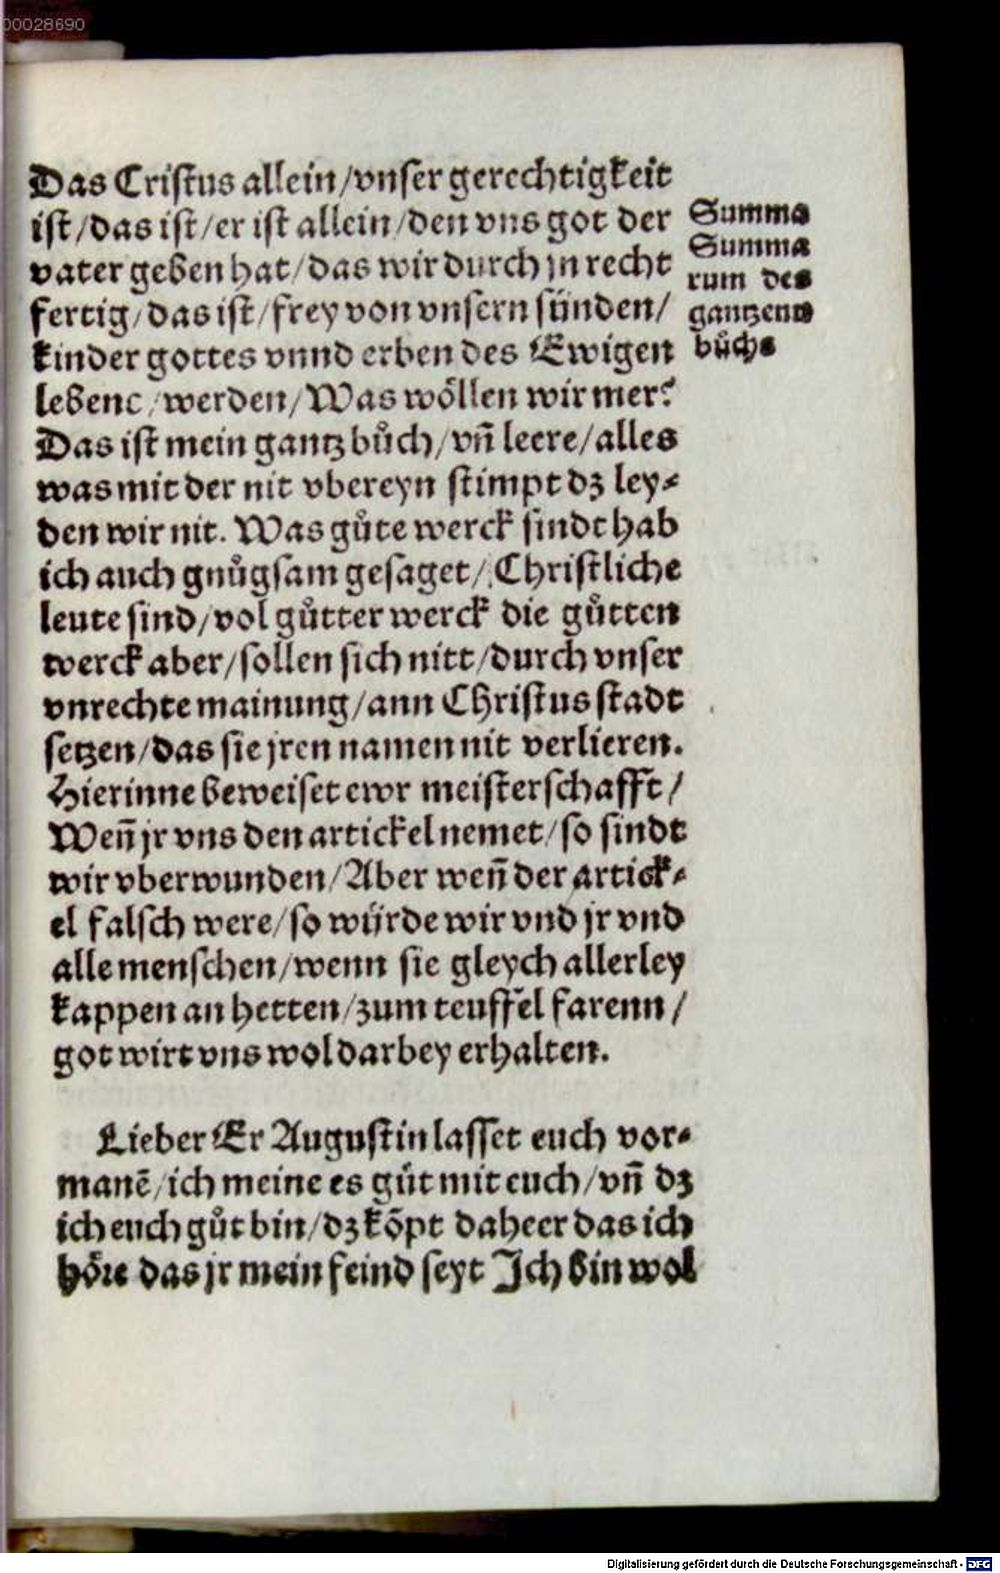 00028690
Das Cristus allein/vnser gerechtigkeit
ist/das ist/er ist allein/den vns got der
vater geben hat/das wir durch jn recht
fertig/das ist/frey von vnsern sünden/
kinder gottes vnnd erben des Ewigen
lebenc/werden/Was wöllen wir mer?
Das ist mein gantz bůch/vn̄ leere/alles
was mit der nit vbereyn stimpt dz ley⸗
den wir nit. Was gůte werck sindt hab
ich auch gnůgsam gesaget/Christliche
leute sind/vol gůtter werck die gůtten
werck aber/sollen sich nitt/durch vnser
vnrechte mainung/ann Christus stadt
setzen/das sie jren namen nit verlieren.
Hierinne beweiset ewr meisterschafft/
Wen̄ jr vns den artickel nemet/so sindt
wir vberwunden/Aber wen̄ der artick⸗
el falsch were/so würde wir vnd jr vnd
alle menschen/wenn sie gleych allerley
kappen an hetten/zum teuffel farenn/
got wirt vns wol darbey erhalten.
Lieber Er Augustin lasset euch vor⸗
manē/ich meine es gůt mit euch/vn̄ dz
ich euch gůt bin/dz kōpt daheer das ich
höre das jr mein feind seyt Ich bin wol
Summa
Summa
rum des
gantzenn
bůchs
Digitalisierung gefördert durch die Deutsche Forschungsgemeinschaft - DFG